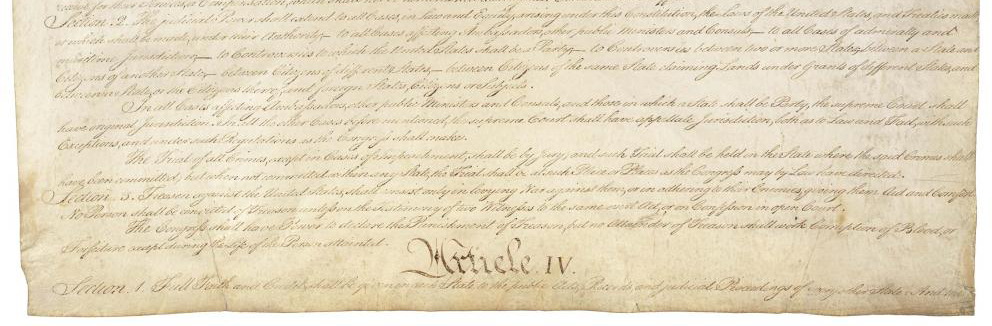 Section. 2. The judicial Power shall extend to all Cases, in Law and Equity, arising under this Constitution, the Laws of the United States, and Treaties made,
or which shall be made, under their Authority;— to all Cases affecting Ambassadors, other public Ministers and Consuls;— to all Cases of admiralty and
maritime Jurisdiction;— to Controversies to which the United States shall be a Party;— to Controversies between two or more States;— between a State and
Citizens of another State,— between Citizens of different States,— between Citizens of the same State claiming Lands under Grants of different States, and
between a State, or the Citizens thereof, and foreign States, Citizens or Subjects.
In all Cases affecting Ambassadors, other public Ministers and Consuls, and those in which a State shall be Party, the supreme Court shall
have original Jurisdiction. In all the other Cases before mentioned, the supreme Court shall have appellate Jurisdiction, both as to Law and Fact, with such
Exceptions, and under such Regulations as the Congress shall make.
The Trial of all Crimes, except in Cases of Impeachment, shall be by Jury; and such Trial shall be held in the State where the said Crimes shall
have been committed; but when not committed within any State, the Trial shall be at such Place or Places as the Congress may by Law have directed.
Section. 3. Treason against the United States, shall consist only in levying War against them, or in adhering to their Enemies, giving them Aid and Comfort.
No Person shall be convicted of Treason unless on the Testimony of two Witnesses to the same overt Act, or on Confession in open Court.
The Congress shall have Power to declare the Punishment of Treason, but no Attainder of Treason shall work Corruption of Blood, or
Forfeiture except during the Life of the Person attainted.
Article. IV.
Section. 1. Full Faith and Credit shall be given in each State to the public Acts, Records, and judicial Proceedings of every other State. And the